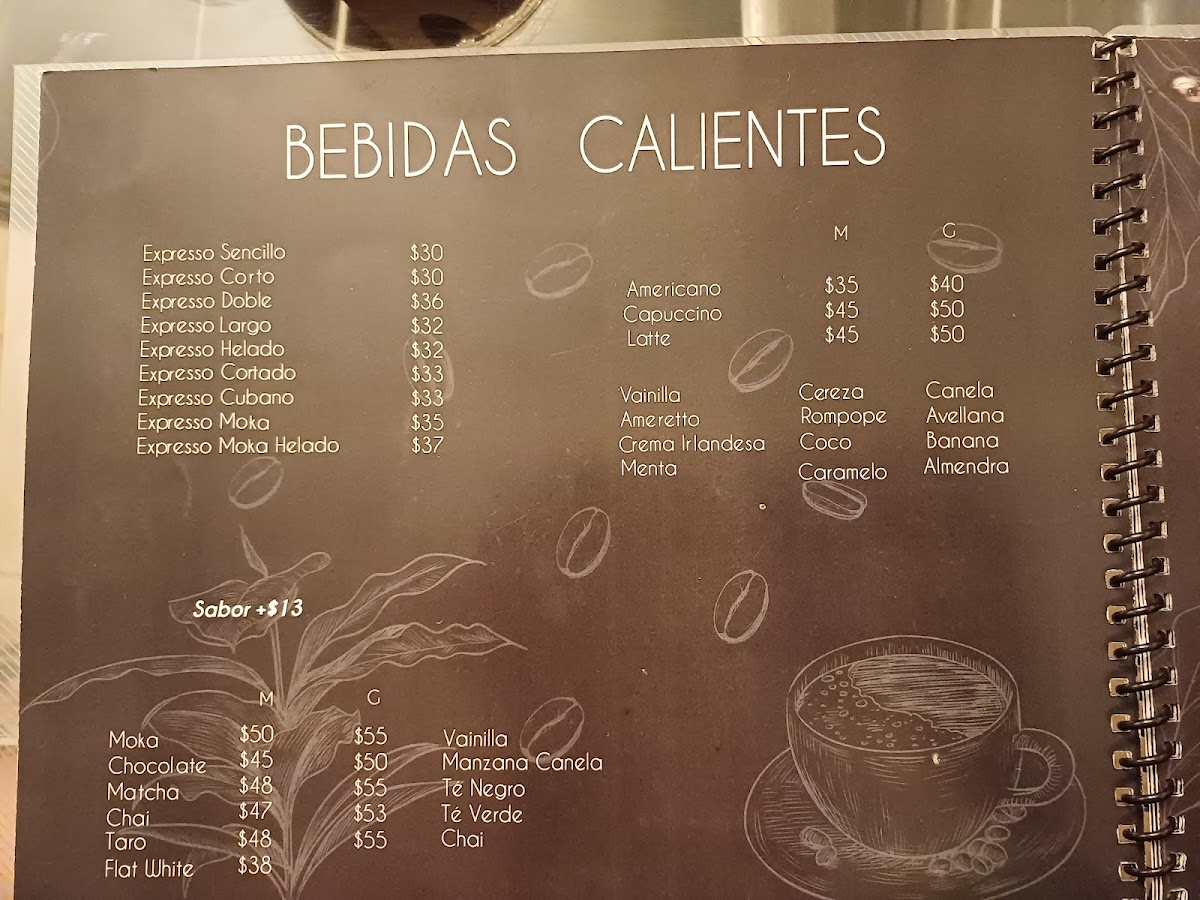 BEBIDAS CALIENTES
Expresso Sencillo $30
Expresso Corto $30
Expresso Doble $36
Expresso Largo $32
Expresso Helado $32
Expresso Cortado $33
Expresso Cubano $33
Expresso Moka $35
Expresso Moka Helado $37
M G
Americano $35 $40
Capuccino $45 $50
Latte $45 $50
Vainilla Cereza Canela
Ameretto Rompope Avellana
Crema Irlandesa Coco Banana
Menta Caramelo Almendra
Sabor +$13
M G
Moka $50 $55 Vainilla
Chocolate $45 $50 Manzana Canela
Matcha $48 $55 Té Negro
Chai $47 $53 Té Verde
Taro $48 $55 Chai
Flat White $38